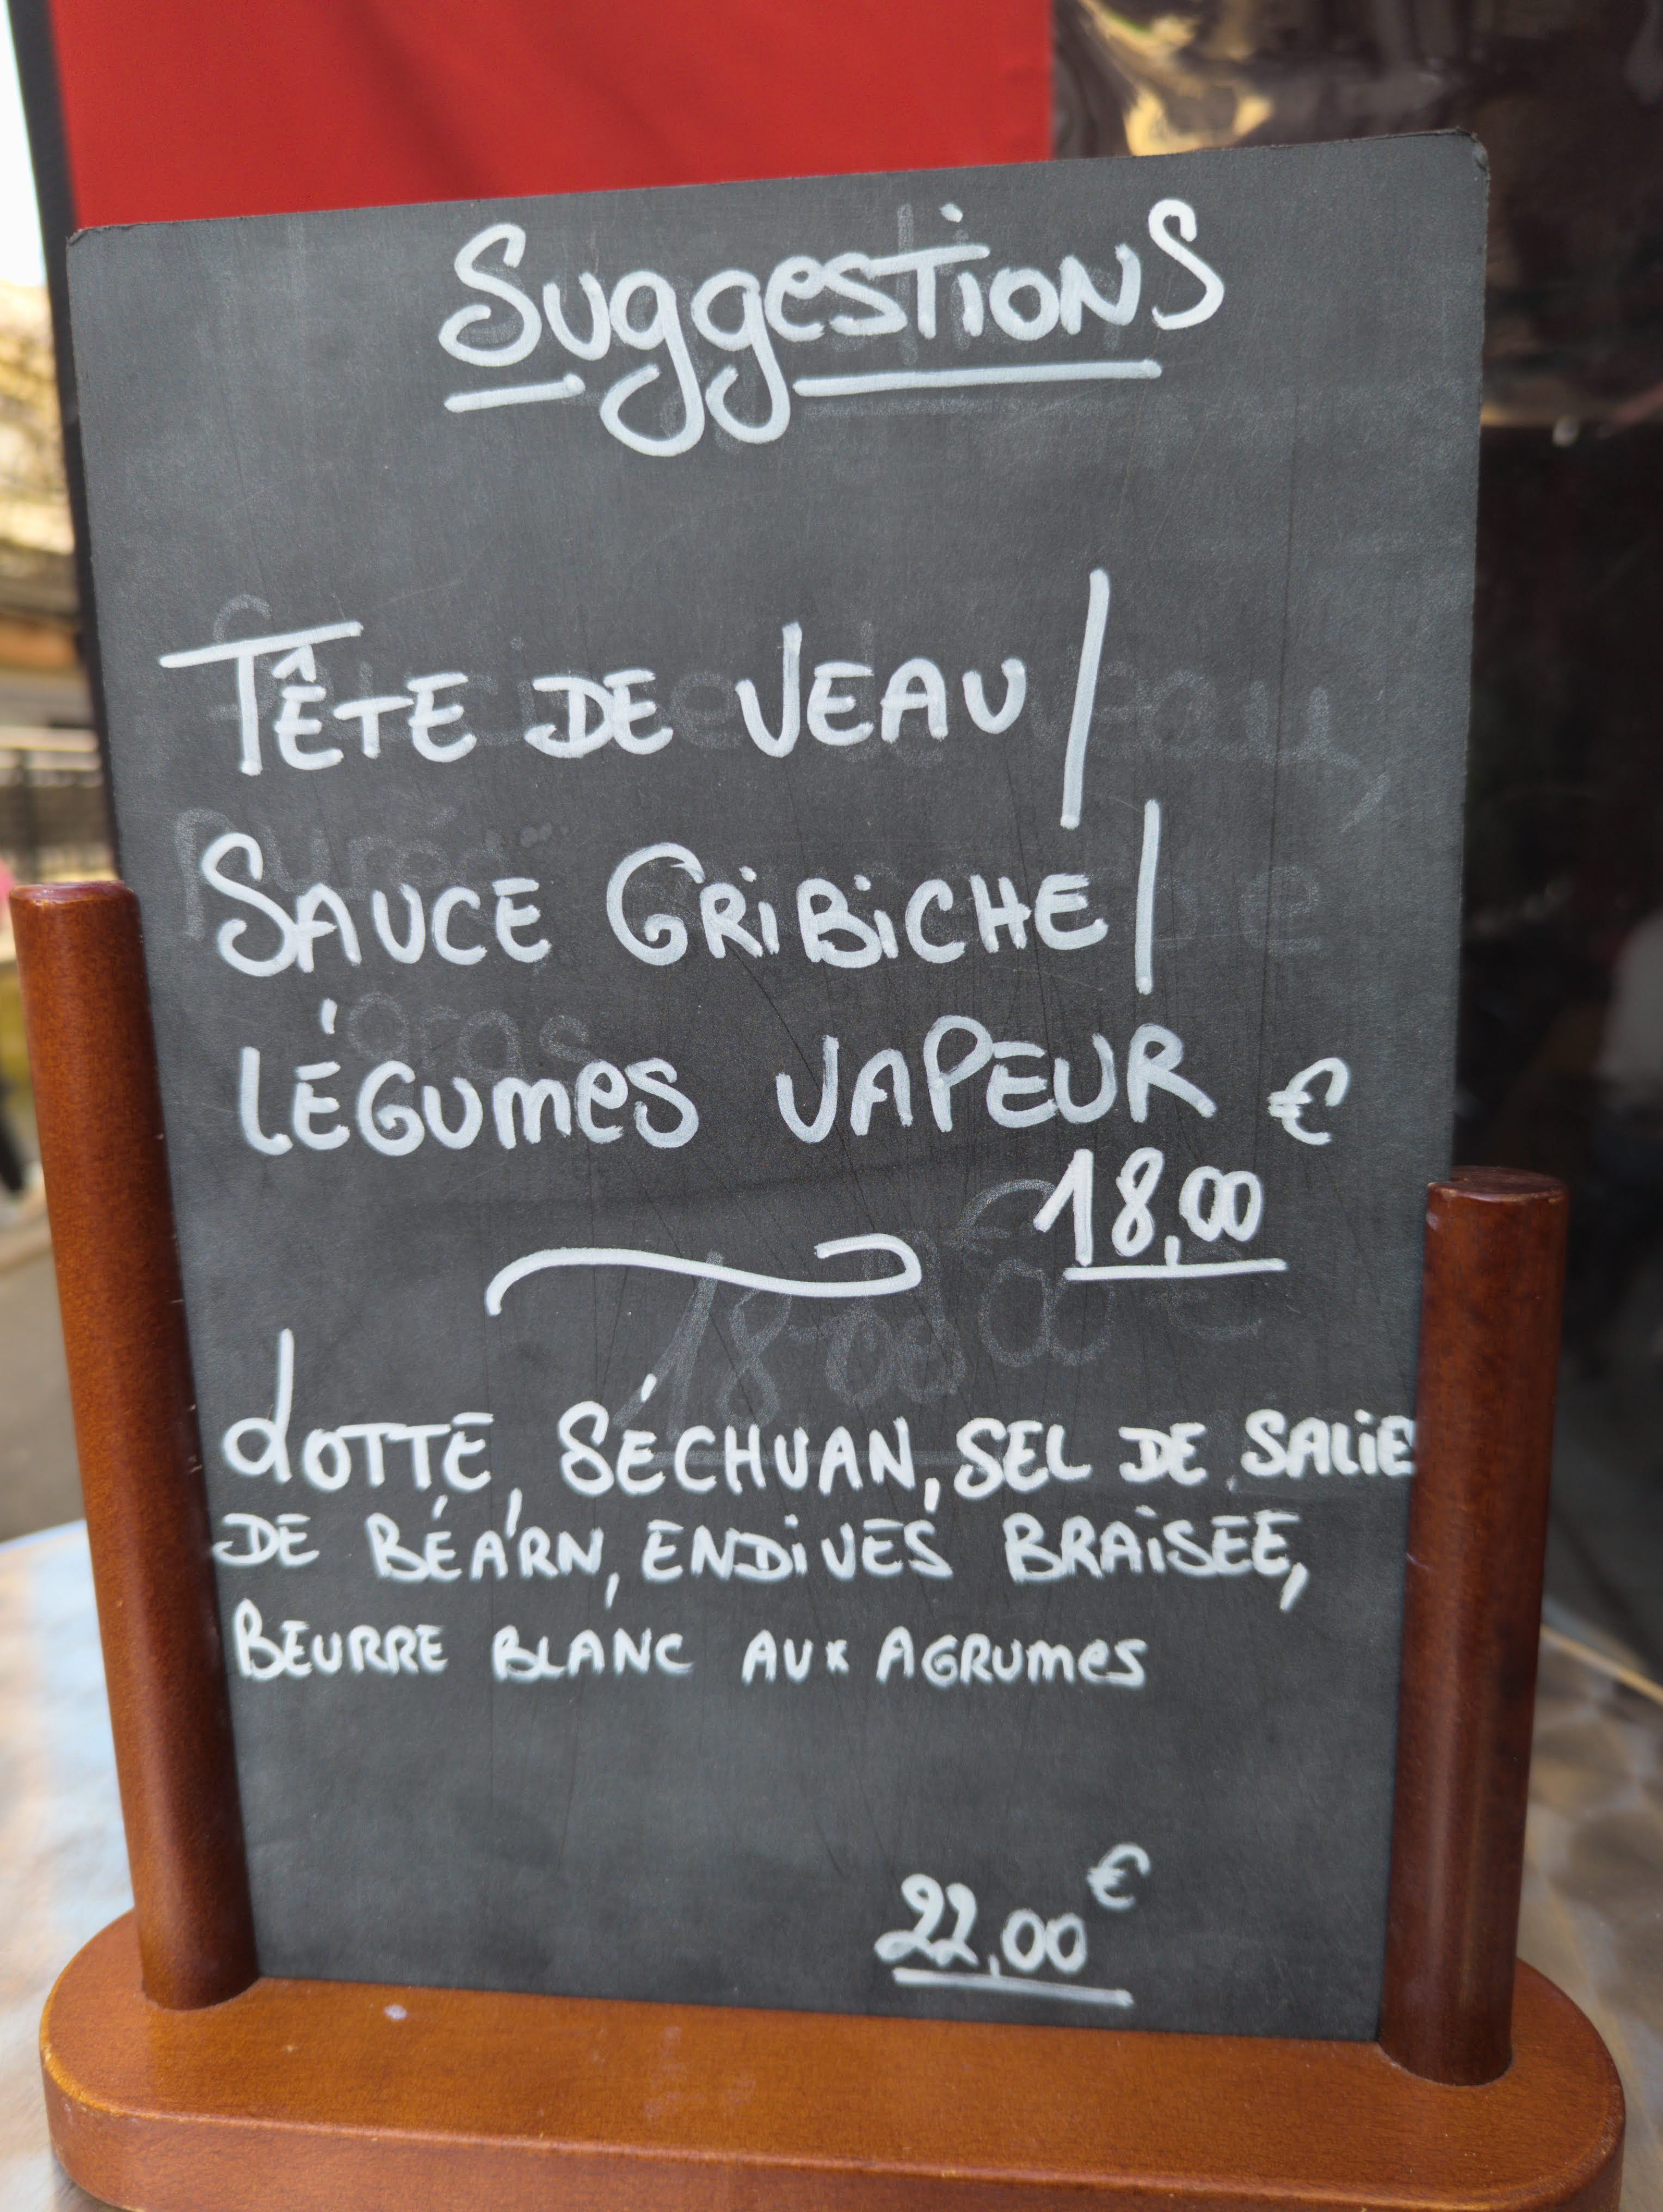 Suggestions
TÊTE DE VEAU /
SAUCE GRIBICHE /
LÉGUMES VAPEUR €
18,00
LOTTE, SÉCHUAN, SEL DE SALIE
DE BÉARN, ENDIVES BRAISEE,
BEURRE BLANC AUX AGRUMES
€
22,00